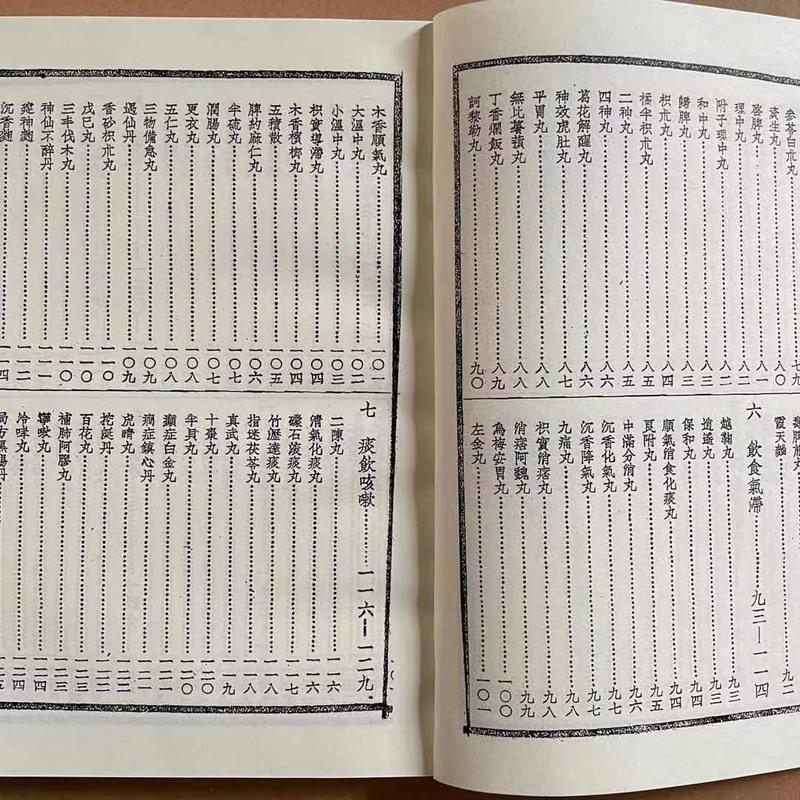 參苓白朮丸……七九
資生丸……八〇
啓脾丸……八一
理中丸……八二
附子理中丸……八二
和中丸……八三
歸脾丸……八三
枳朮丸……八四
橘半枳朮丸……八五
二神丸……八五
四神丸……八六
葛花解醒丸……八六
神效虎肚丸……八八
平胃丸……八八
無比丸……八九
丁香爛飯丸……八九
訶黎勒丸……九〇
霞天麯……九二
六 飲食氣滯……九三—一一四
越鞠丸……九三
逍遙丸……九三
保和丸……九四
順氣消食化痰丸……九四
夏附丸……九五
中滿分消丸……九六
沉香化氣丸……九七
沉香降氣丸……九七
九痛丸……九八
枳實消痞丸……九九
消痞阿魏丸……九九
烏梅安胃丸……一〇〇
左金丸……一〇一
木香順氣丸……一〇一
大溫中丸……一〇二
小溫中丸……一〇三
枳實導滯丸……一〇四
木香檳榔丸……一〇四
五積散……一〇五
脾約麻仁丸……一〇六
半硫丸……一〇七
潤腸丸……一〇七
更衣丸……一〇八
五仁丸……一〇八
三物備急丸……一〇九
遇仙丹……一〇九
香砂枳朮丸……一一〇
戊己丸……一一〇
三半伐木丸……一一〇
神仙不醉丹……一一一
建神麯……一一二
沉香麯……一一四
七 痰飲咳嗽……一一六—一二九
二陳丸……一一六
清氣化痰丸……一一六
礞石滾痰丸……一一七
竹瀝達痰丸……一一八
指迷茯苓丸……一一八
真武丸……一一九
十棗丸……一二〇
半貝丸……一二〇
癲症白金丸……一二一
癇症鎮心丹……一二一
虎睛丸……一二二
控涎丹……一二二
百花丸……一二二
補肺阿膠丸……一二三
寧嗽丸……一二四
冷哮丸……一二四
局方黑錫丹……一二五